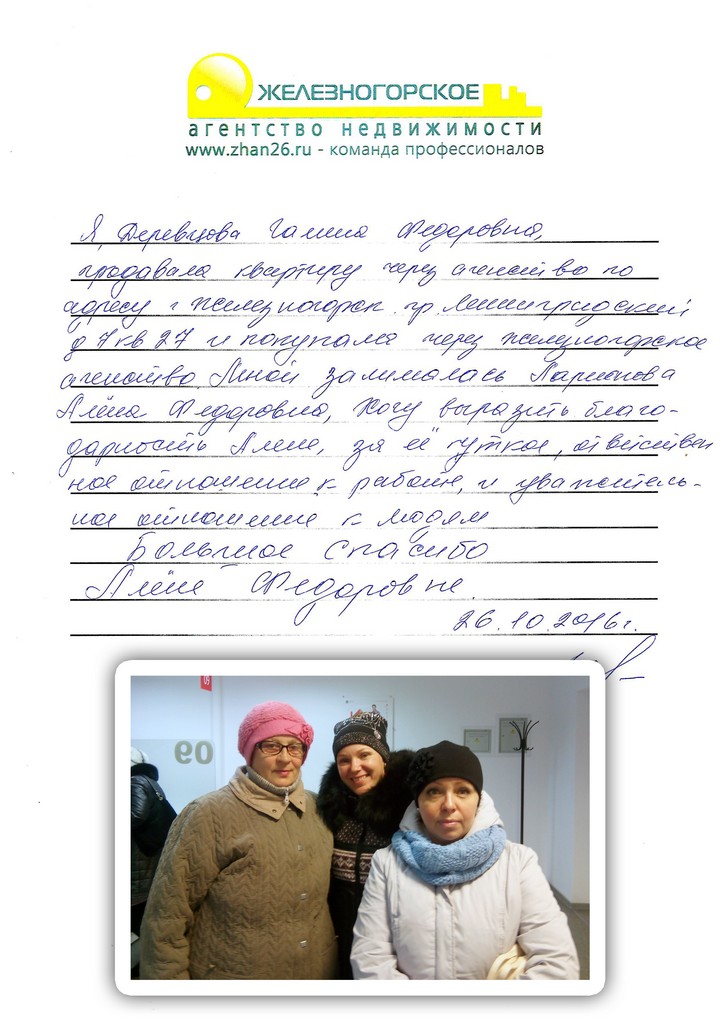 ЖЕЛЕЗНОГОРСКОЕ
агентство недвижимости
www.zhan26.ru - команда профессионалов
Я, Деревцова Галина Федоровна,
продавала квартиру через агенство по
адресу г Железногорск пр. Ленинградский
д 7 кв 27 и покупала через железногорское
агенство. Мной занималась Ларионова
Алёна Федоровна, Хочу выразить благо-
дарность Алене, за её чуткое, ответствен
ное отношение к работе, и уважитель-
ное отношение к людям
Большое Спасибо
Алёне Федоровне.
26.10.2016г.
09